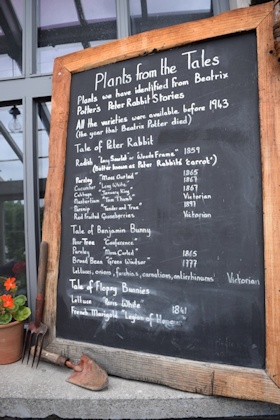 Plants from the Tales
Plants we have identified from Beatrix
Potter's Peter Rabbit Stories
All the varieties were available before 1943
(the year that Beatrix Potter died)
Tale of Peter Rabbit
Radish "Long Scarlet" or Woods Frame" 1859
(Better known as Peter Rabbits 'carrot')
Parsley "Moss Curled" 1865
Cucumber "Long White" 1867
Cabbage 1867
Nasturtium "Tom Thumb" Victorian
Parsnip "Tender and True" 1897
Red fruited Gooseberries Victorian
Tale of Benjamin Bunny
Pear Tree "Conference"
Parsley Moss Curled 1865
Broad Bean "Green Windsor" 1777
Lettuces, onions, fuchsias, carnations, antirrhinums Victorian
Tale of Flopsy Bunnies
Lettuce "Paris White"
French Marigold "Legion of Honour" 1841